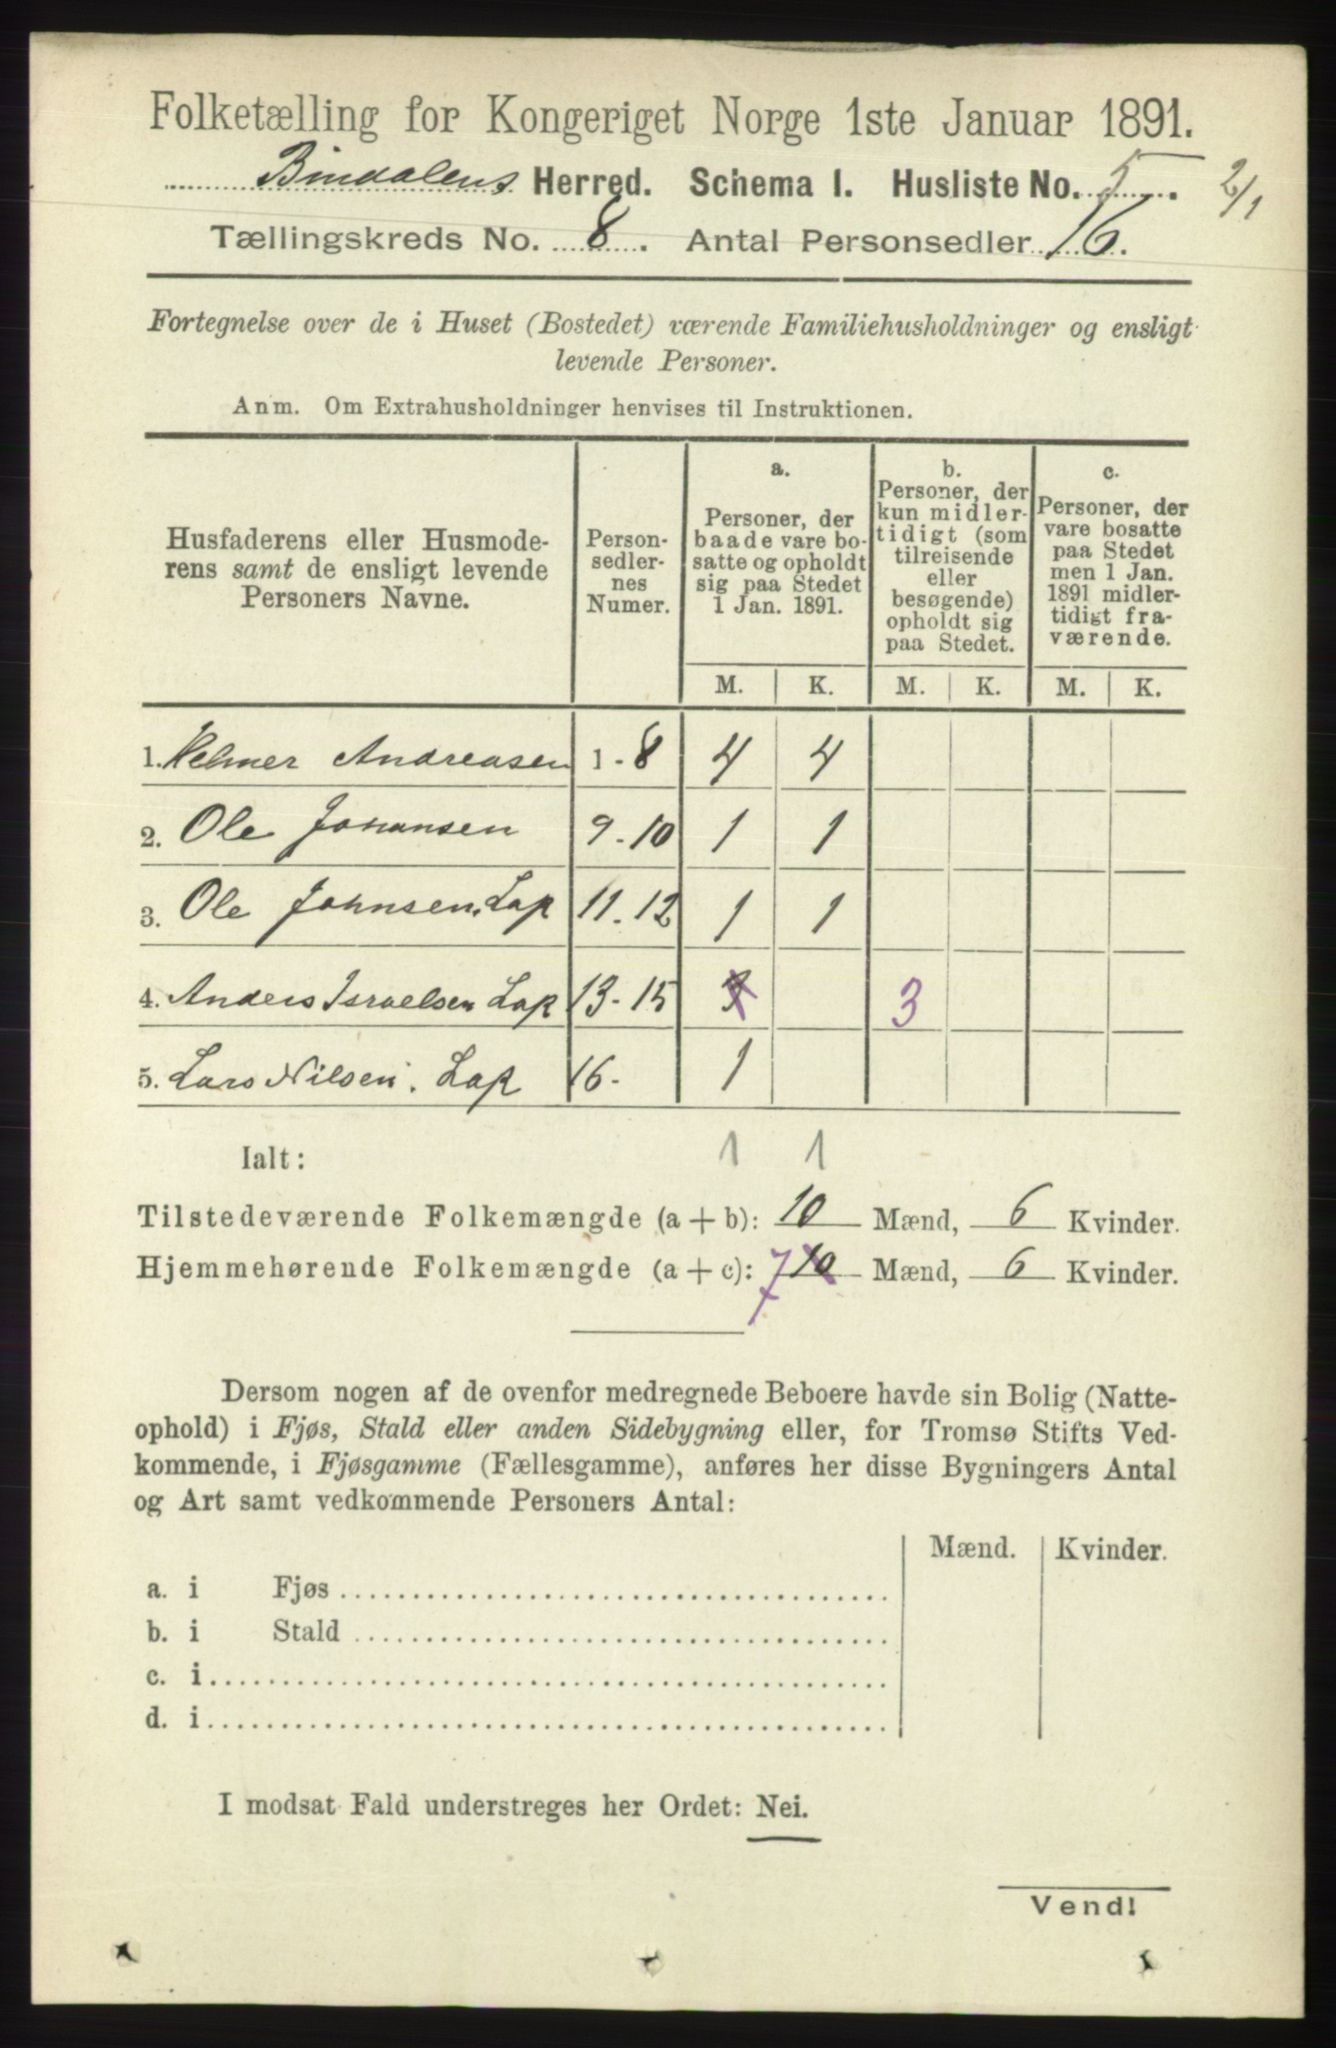 Folketælling for Kongeriget Norge 1ste Januar 1891.
Bindalens Herred. Schema I. Husliste No. 5. 2/1
Tællingskreds No. 8. Antal Personsedler 16.
Fortegnelse over de i Huset (Bostedet) værende Familiehusholdninger og ensligt
levende Personer.
Anm. Om Extrahusholdninger henvises til Instruktionen.
Husfaderens eller Husmode-
rens samt de ensligt levende
Personers Navne.
Person-
sedler-
nes
Numer.
a.
Personer, der
baade vare bo-
satte og opholdt
sig paa Stedet
1 Jan. 1891.
b.
Personer, der
kun midler-
tidigt (som
tilreisende
eller
besøgende)
opholdt sig
paa Stedet.
c.
Personer, der
vare bosatte
paa Stedet
men 1 Jan.
1891 midler-
tidigt fra-
værende.
M. K. M. K. M. K.
1. Helmer Andreasen 1-8 4 4
2. Ole Johansen 9-10 1 1
3. Ole Johnsen, Lap 11-12 1 1
4. Anders Israelsen Lap 13-15 3 3
5. Lars Nilsen. Lap 16- 1
Ialt: 1 1
Tilstedeværende Folkemængde (a + b): 10 Mænd, 6 Kvinder.
Hjemmehørende Folkemængde (a + c): 7 10 Mænd, 6 Kvinder.
Dersom nogen af de ovenfor medregnede Beboere havde sin Bolig (Natte-
ophold) i Fjøs, Stald eller anden Sidebygning eller, for Tromsø Stifts Ved-
kommende, i Fjøsgamme (Fællesgamme), anføres her disse Bygningers Antal
og Art samt vedkommende Personers Antal:
Mænd. Kvinder.
a. i Fjøs
b. i Stald
c. i
d. i
I modsat Fald understreges her Ordet: Nei.
Vend!